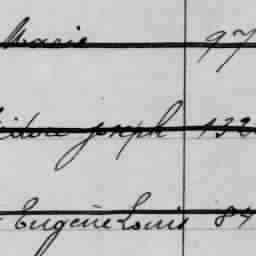 Marie 97
Joseph 132
Eugène Louis 84